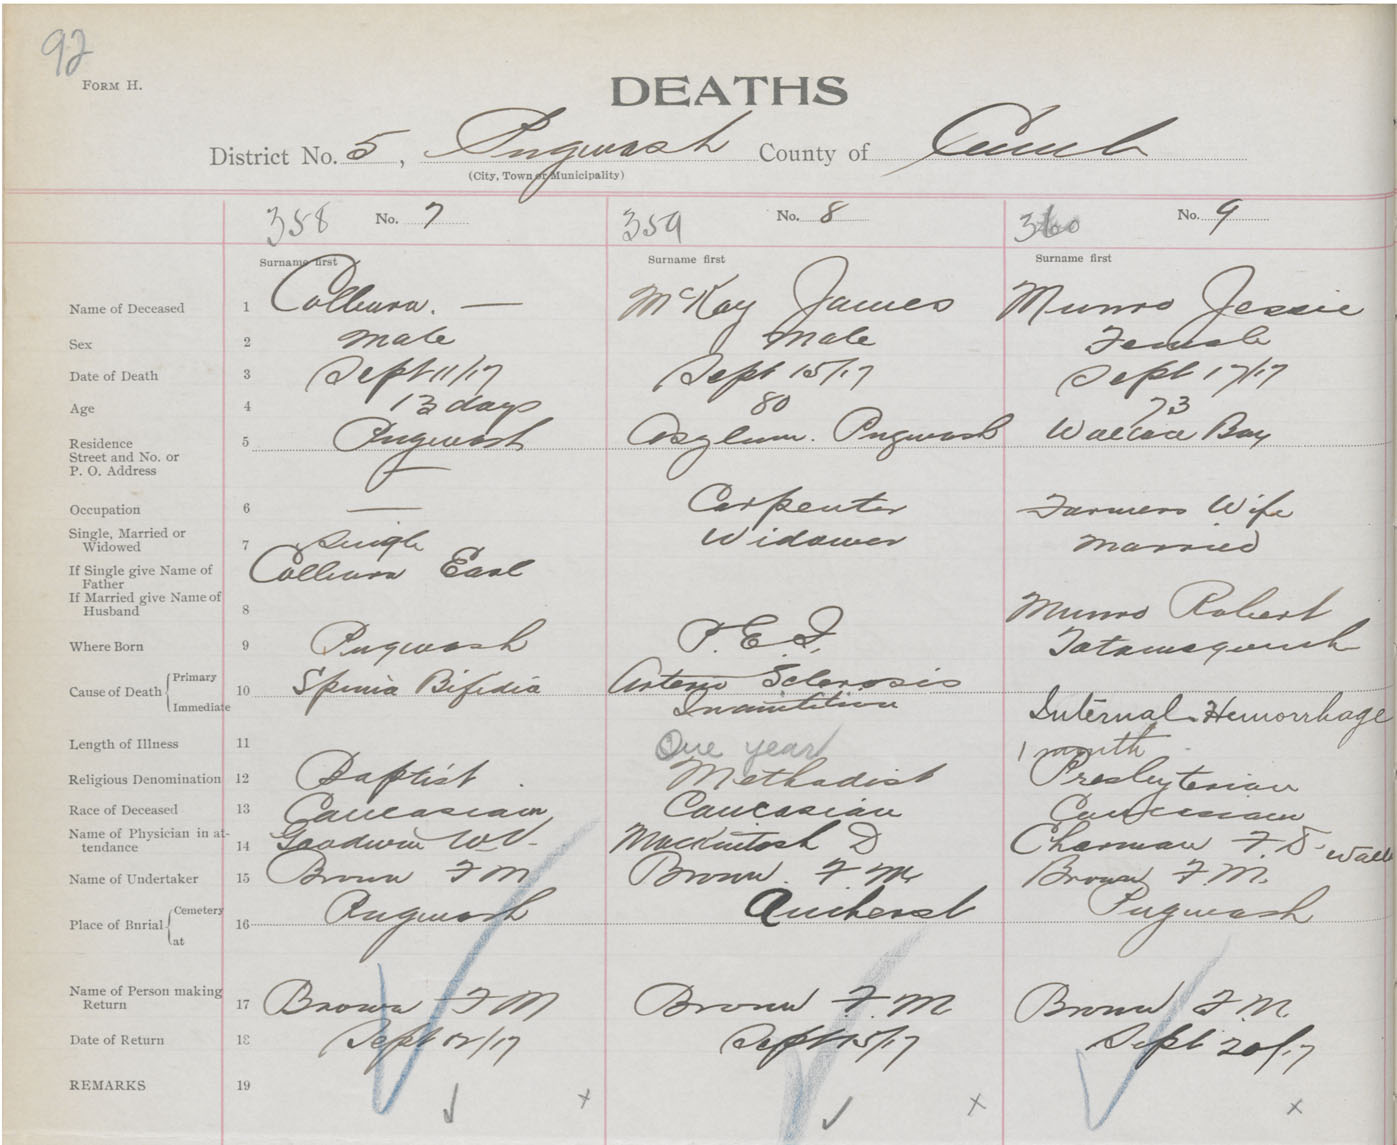 92
FORM H.
DEATHS
District No. 5, Pugwash County of Cumb
(City, Town or Municipality)
358 No. 7 359 No. 8 360 No. 9
Surname first Surname first Surname first
Name of Deceased 1 Colburn. — McKay James Munro Jessie
Sex 2 Male Male Female
Date of Death 3 Sept 11/17 Sept 15/17 Sept 17/17
Age 4 13 days 80 73
Residence 5 Pugwash Asylum. Pugwash Wallace Bay
Street and No. or
P. O. Address
Occupation 6 — Carpenter Farmers Wife
Single, Married or
Widowed 7 Single Widower Married
If Single give Name of
Father Colburn Earl
If Married give Name of
Husband 8 Munro Robert
Where Born 9 Pugwash P.E.I. Tatamagouch
Cause of Death Primary 10 Spinia Bifidia Arterio Sclerosis
Immediate Inanitition Internal Hemorrhage
Length of Illness 11 One year 1 month
Religious Denomination 12 Baptist. Methodist Presbyterian
Race of Deceased 13 Caucasian Caucasian Caucasian
Name of Physician in at-
tendance 14 Goodwin WV. Mackintosh D Charman F. D. Wall
Name of Undertaker 15 Brown F M Brown. F. M. Brown F. M.
Place of Bnrial Cemetery 16 Pugwash Amherst Pugwash
at
Name of Person making
Return 17 Brown F M Brown F. M Brown F. M.
Date of Return 18 Sept 12/17 Sept 15/17 Sept 20/17
REMARKS 19